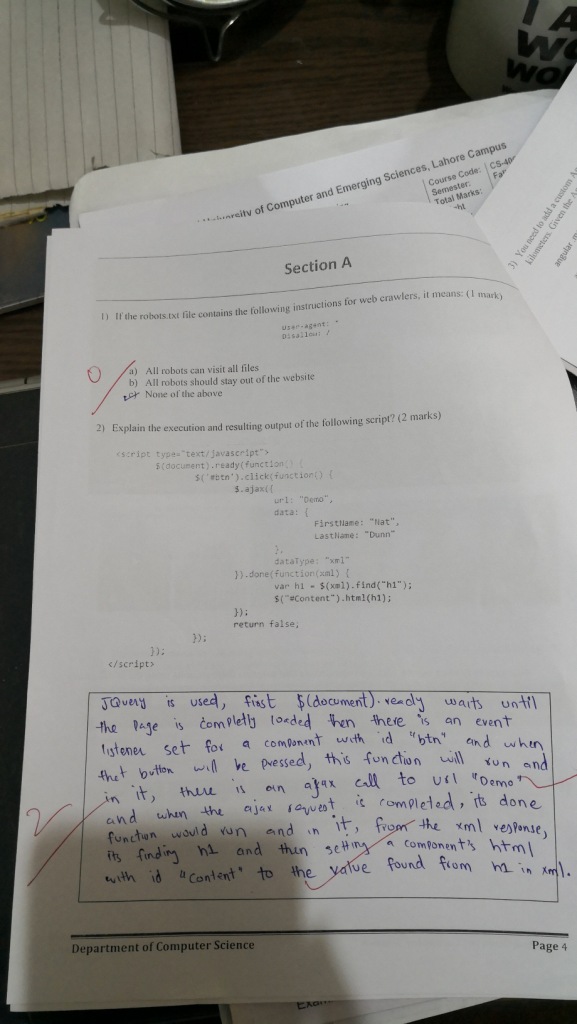 3) You need to add a custom
kilometers. Given the
angular
University of Computer and Emerging Sciences, Lahore Campus
Course Code:
Semester:
Total Marks:
CS-
Fa
Section A
1) If the robots.txt file contains the following instructions for web crawlers, it means: (1 mark)
User-agent: *
Disallow: /
a) All robots can visit all files
b) All robots should stay out of the website
None of the above
0
2) Explain the execution and resulting output of the following script? (2 marks)
<script type="text/javascript">
$(document).ready(function() {
$("#btn").click(function() {
$.ajax({
url: "Demo",
data: {
FirstName: "Nat",
LastName: "Dunn"
},
dataType: "xml"
}).done(function(xml) {
var h1 = $(xml).find("h1");
$("#Content").html(h1);
});
return false;
});
});
</script>
JQuery is used, first $(document).ready waits until
the page is completly loaded then there is an event
listener set for a component with id "btn" and when
that button will be pressed, this function will run and
in it, there is an ajax call to url "Demo"
and when the ajax request is completed, its done
function would run and in it, from the xml response,
its finding h1 and then setting a component's html
with id "Content" to the value found from h1 in xml.
2
Department of Computer Science
Page 4